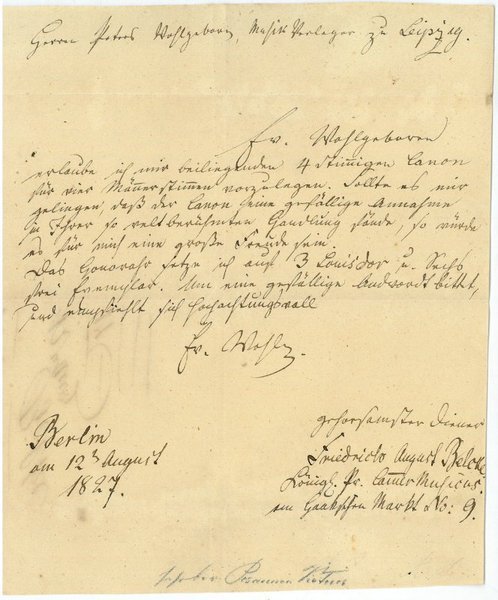 Herrn Peters Wohlgeborn, Musik Verleger zu Leipzig.
Ew. Wohlgeboren
erlaube ich mir beiliegenden 4 stimmigen Canon
für vier Männerstimmen vorzulegen. Sollte es mir
gelingen daß der Canon seine gefällige Annahme
in Ihrer so weltberühmten Handlung fände, so würde
es für mich eine große Freude sein.
Das Honorar setze ich auf 3 Louisdor u. Sechs
frei Exemplar. Um eine gefällige Andwordt bittet,
und empfiehlt sich hochachtungsvoll
Ew. Wohlg.
gehorsamster Diener
Friedrich August Belcke
Königl. Pr. Cammer Musicus.
am Haakschen Markt No: 9.
Berlin
am 12t August
1827.